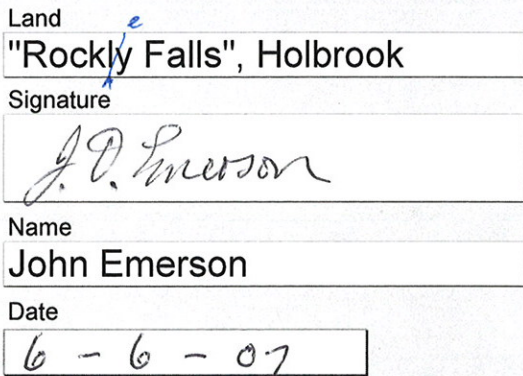 Land
e
"Rockly Falls", Holbrook
Signature
J. D. Emerson
Name
John Emerson
Date
6 - 6 - 07